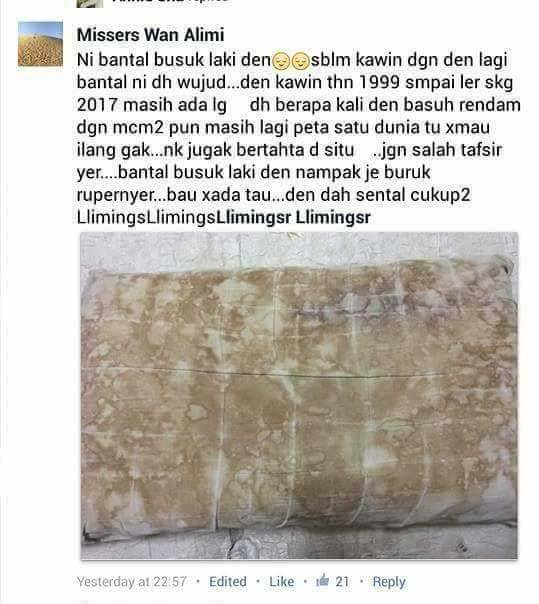 Missers Wan Alimi
Ni bantal busuk laki den😔😔sblm kawin dgn den lagi
bantal ni dh wujud...den kawin thn 1999 smpai ler skg
2017 masih ada lg dh berapa kali den basuh rendam
dgn mcm2 pun masih lagi peta satu dunia tu xmau
ilang gak...nk jugak bertahta d situ ..jgn salah tafsir
yer....bantal busuk laki den nampak je buruk
rupernyer...bau xada tau...den dah sental cukup2
LlimingsLlimingsLlimingsr Llimingsr
Yesterday at 22:57 · Edited · Like · 21 · Reply